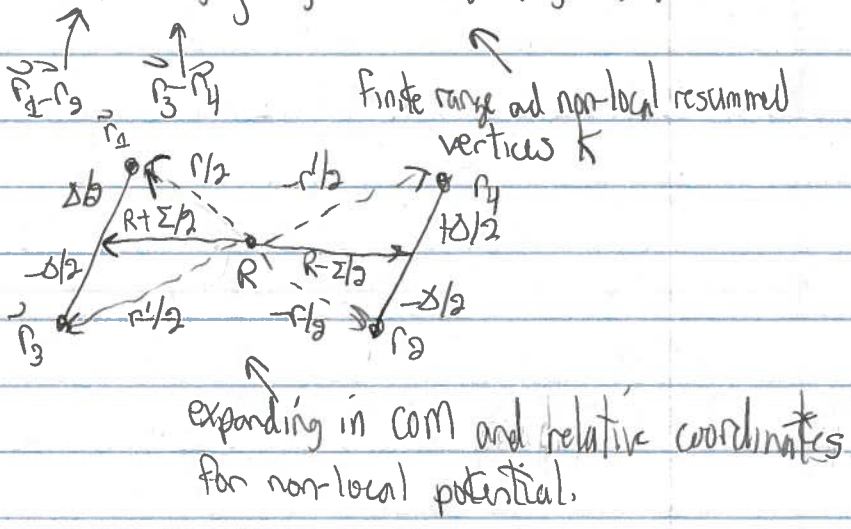 r⃗₁-r⃗₂ r⃗₃-r⃗₄
finite range and non-local resummed
vertices K
r⃗₁
r/2
-r'/2
r₄
Δ/2
R+Σ/2
+Δ/2
-Δ/2
R
R-Σ/2
r⃗₃
r'/2
-r/2
-Δ/2
r₂
expanding in COM and relative coordinates
for non-local potential.